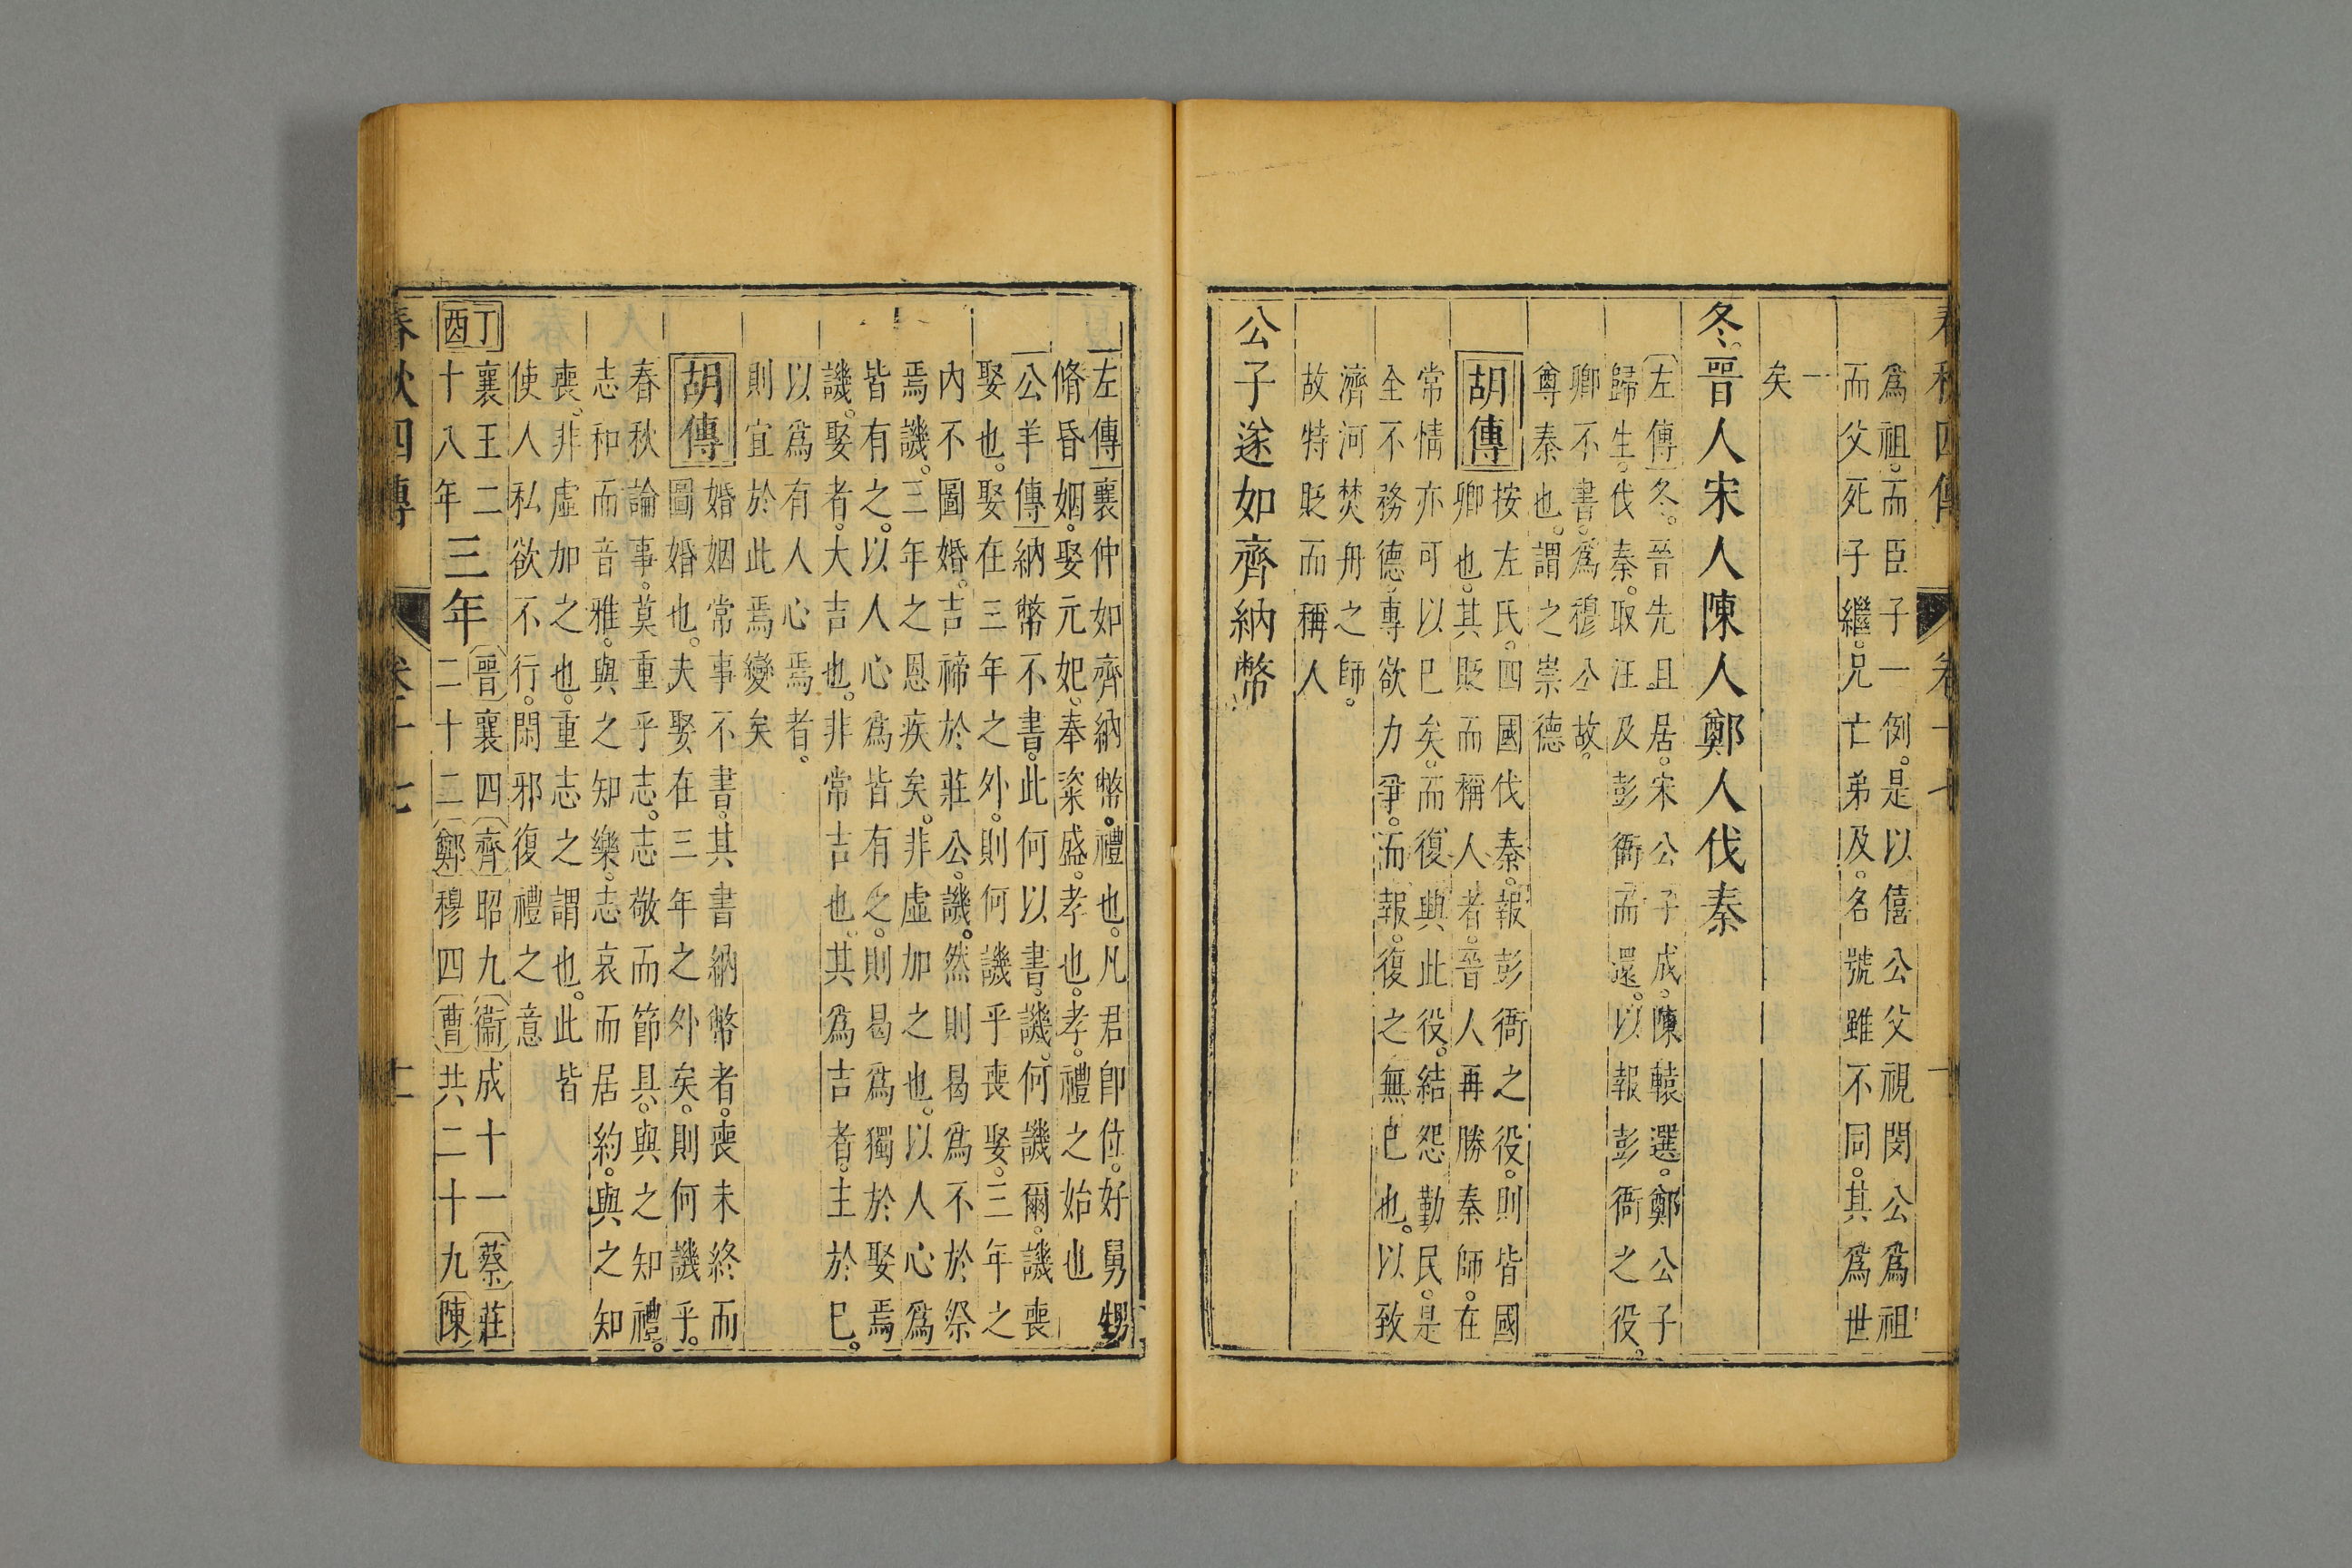 為祖。而臣子一例。是以僖公父視閔公為祖
而父死子繼。兄亡弟及。名號雖不同。其為世
一
矣
冬、晉人宋人陳人鄭人伐秦
左傳冬。晉先且居。宋公子成。陳轅選。鄭公子
歸生。伐秦。取汪及彭衙而還。以報彭衙之役。
卿不書。為穆公故。
尊秦也。謂之崇德
胡傳
按左氏。四國伐秦。報彭衙之役。則皆國
卿也。其貶而稱人者。晉人再勝秦師。在
常情亦可以已矣。而復興此役。結怨勤民。是
全不務德。專欲力爭。而報。復之無已也。以致
濟河焚舟之師。
故特貶而稱人
公子遂如齊納幣
左傳襄仲如齊納幣。禮也。凡君即位。好舅甥
脩昏姻。娶元妃。奉粢盛。孝也。孝。禮之始也
公羊傳納幣不書。此何以書。譏。何譏爾。譏喪
娶也。娶在三年之外。則何譏乎喪娶。三年之
內不圖婚。吉禘於莊公。譏。然則曷為不於祭
焉譏。三年之恩疾矣。非虛加之也。以人心為
皆有之。以人心為皆有之。則曷為獨於娶焉
譏。娶者。大吉也。非常吉也。其為吉者。主於已。
以為有人心焉者。
則宜於此焉變矣
胡傳
婚姻常事不書。其書納幣者。喪未終而
圖婚也。夫娶在三年之外矣。則何譏乎。
春秋論事。莫重乎志。志敬而節具。與之知禮。
志和而音雅。與之知樂。志哀而居約。與之知
喪。非虛加之也。重志之謂也。此皆
使人私欲不行。閑邪復禮之意
丁酉
襄王二十八年
三年
晉襄四齊昭九衞成十一蔡莊
二十二鄭穆四曹共二十九陳
春秋四傳
卷十七